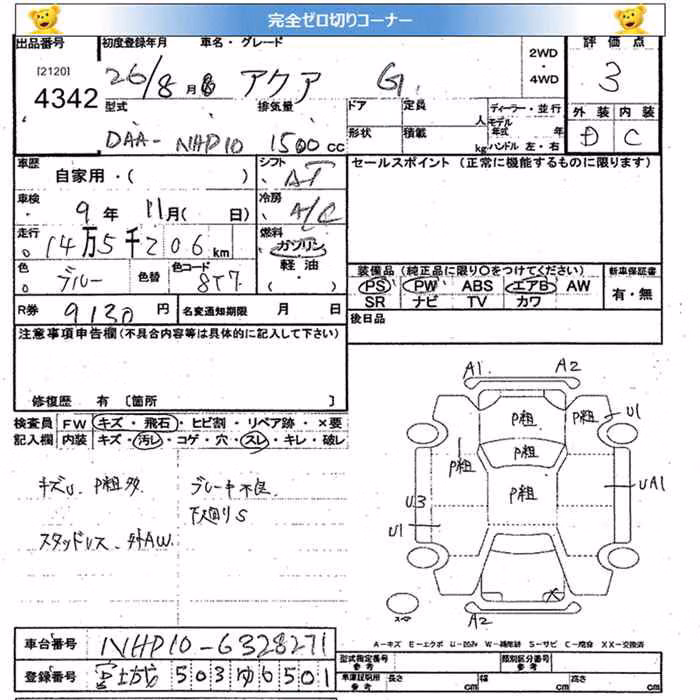 完全ゼロ切りコーナー
出品番号 初度登録年月 車名・グレード 評価点
[2120] 4342 26/8月 アクア G 2WD ・ 4WD 3
型式 排気量 ドア 定員 人 ディーラー・並行 外装 内装
DAA-NHP10 1500cc 形状 積載 kg モデル年式 年 ハンドル 左・右 D C
車歴 自家用・( ) シフト AT セールスポイント (正常に機能するものに限ります)
車検 9年 11月( 日) 冷房 A/C
走行 14万5千206km 燃料 ガソリン
色 ブルー 色替 色コード 8T7 軽油 装備品 (純正品に限り○をつけてください) 新車保証書
PS PW ABS エアB AW 有・無
SR ナビ TV カワ
R券 9130円 名変通知期限 月 日 後日品
注意事項申告欄(不具合内容等は具体的に記入して下さい)
修復歴 有 [箇所 ]
検査員 FW キズ・飛石・ヒビ割・リペア跡・×要
記入欄 内装 キズ・汚レ・コゲ・穴・スレ・キレ・破レ
キズU P粗多 ブレーキ不良
下廻りS
スタッドレス、外AW
A1 A2
P粗 P粗 U1
P粗 P粗
P粗 UA1
U3
U1
X
スペア A2
A-キズ E-エクボ U-凹み W-補修跡 S-サビ C-腐食 XX-交換済
車台番号 NHP10-6328271
登録番号 富士山 503 ゆ 6501
型式指定番号 参考 類別区分番号 参考
車庫証明用 参考 長さ cm 幅 cm 高さ cm